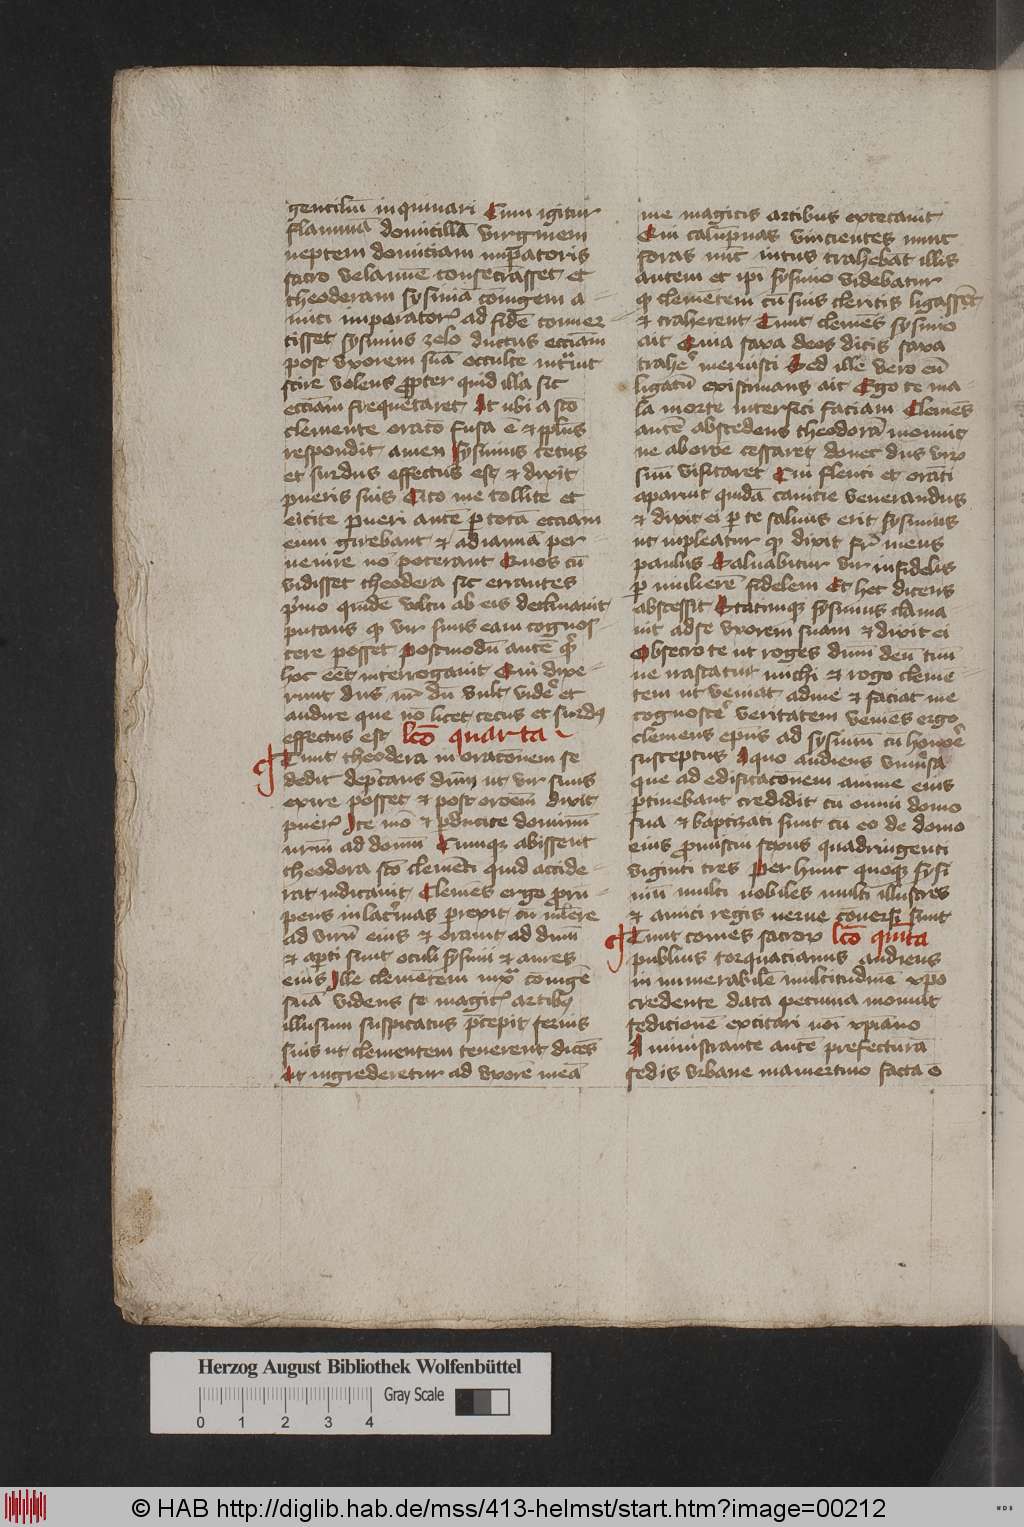 gentiliū inquinari Cum igitur
flammā domicillā virginem
neptem domiciani imp̄atoris
sacro velamine consecrasset et
theoderam sysiniā cōiugem a-
mici imperatoris ad fidē conuer
tisset sysinius zelo ductus ecciam
post vxorem suā occulte intͣuit
scire volens ꝓpter quid illa sic
ecciam frequētaret At vbi a sco
clemente oracō fusa ē et pplus
respondit amen sysinius cecus
et surdus effectus est et dixit
pueris suis Cito me tollite et
eicite Pueri autē ꝑ totā ecciam
eum girebant et ad ianuā per
uenire nō poterant Quos cū
vidisset theodera sic errantes
pͥmo quidē vultu ab eis declinauit
putans ꝙ vir suus eam cognos-
cere posset Postmodū autē qͥd
hoc eēt interrogauit Qui dixe-
runt dns nr̄ dū vult videre et
audire que nō licet cecus et surdus
effectus est lcō quarta
Tunc theodera in oracōnem se
dedit dep̄cans dnm̄ ut vir suus
exire posset et post orōem dixit
pueris Ite mō et ꝑducite dominū
urm̄ ad domū Cumqꝫ abissent
theodora sco clemēti quid accide-
rat indicauit Clemēs ergo prim-
pens in lacͥmas prexit cū muliere
ad virū eius et orauit ad dnm̄
et aꝑti sunt oculi sysinii et aures
eius Ille clemētem iuxͣ coniugē
suā videns se magicis artibꝫ
illusum suspicatus p̄cepit seruis
suis ut clementem tenerent dicēs
Ut ingrederetur ad vxorē meā
me magicis artibus excecauit
Qui colūpnas vincientes nunc
foras nūc intus trahebāt illis
autem et ipi sysinio videbatur
ꝙ clemētem cū suis clericis ligassēt
et traherent Tunc clemēs sysinio
ait Quia saxa deos dicis saxa
trahere meruisti Sed ille vero eū
ligatū existimans ait Ego te ma-
la morte interfici faciam Clemēs
autē abscedens theodorā monuit
ne ab orōe cessaret donec dns virū
suū visitaret Cui flenti et orāti
aparuit quidā canicie venerandus
et dixit ei ꝑ te saluus erit sysinius
ut impleatur ꝙ dixit fr̄ meus
paulus Saluabitur vir infidelis
ꝑ mulierē fidelem Et hec dicens
abscessit Statimqꝫ sysinius clama-
uit ad se vxorem suam et dixit ei
Obsecro te ut roges dnm̄ deū tuū
ne irascatur michi et rogo cleme-
tem ut veniat ad me et faciat me
cognoscere veritatem veniēs ergo
clemens epus ad sysiniū cū honore
susceptus A quo audiens vniūsa
que ad edificacōnem anime eius
ꝑtinebant credidit cū omni domo
sua et baptizati sunt cū eo de domo
eius ꝓmiscui sexus quadringenti
viginti tres Per hunc quoqꝫ sysi
niū multi nobiles multi illustres
et amici regis nerue cōuersi sunt
Tunc comes sacrorū lcō qui͞ta
publius torquacianus audiens
innumerabilē multitudinē xpo
credente data pecunia monuit
sedicionē excitari noi xpiano
Aministrante autē prefecturā
sedis vrbane mamertino facta ē
Herzog August Bibliothek Wolfenbüttel
0 1 2 3 4 Gray Scale
© HAB http://diglib.hab.de/mss/413-helmst/start.htm?image=00212
WDB